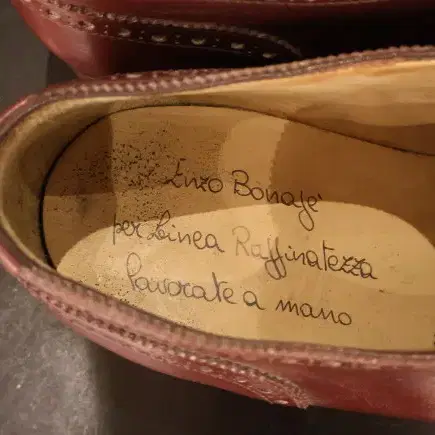 Enzo Bonafè
per Linea Raffinatezza
lavorate a mano